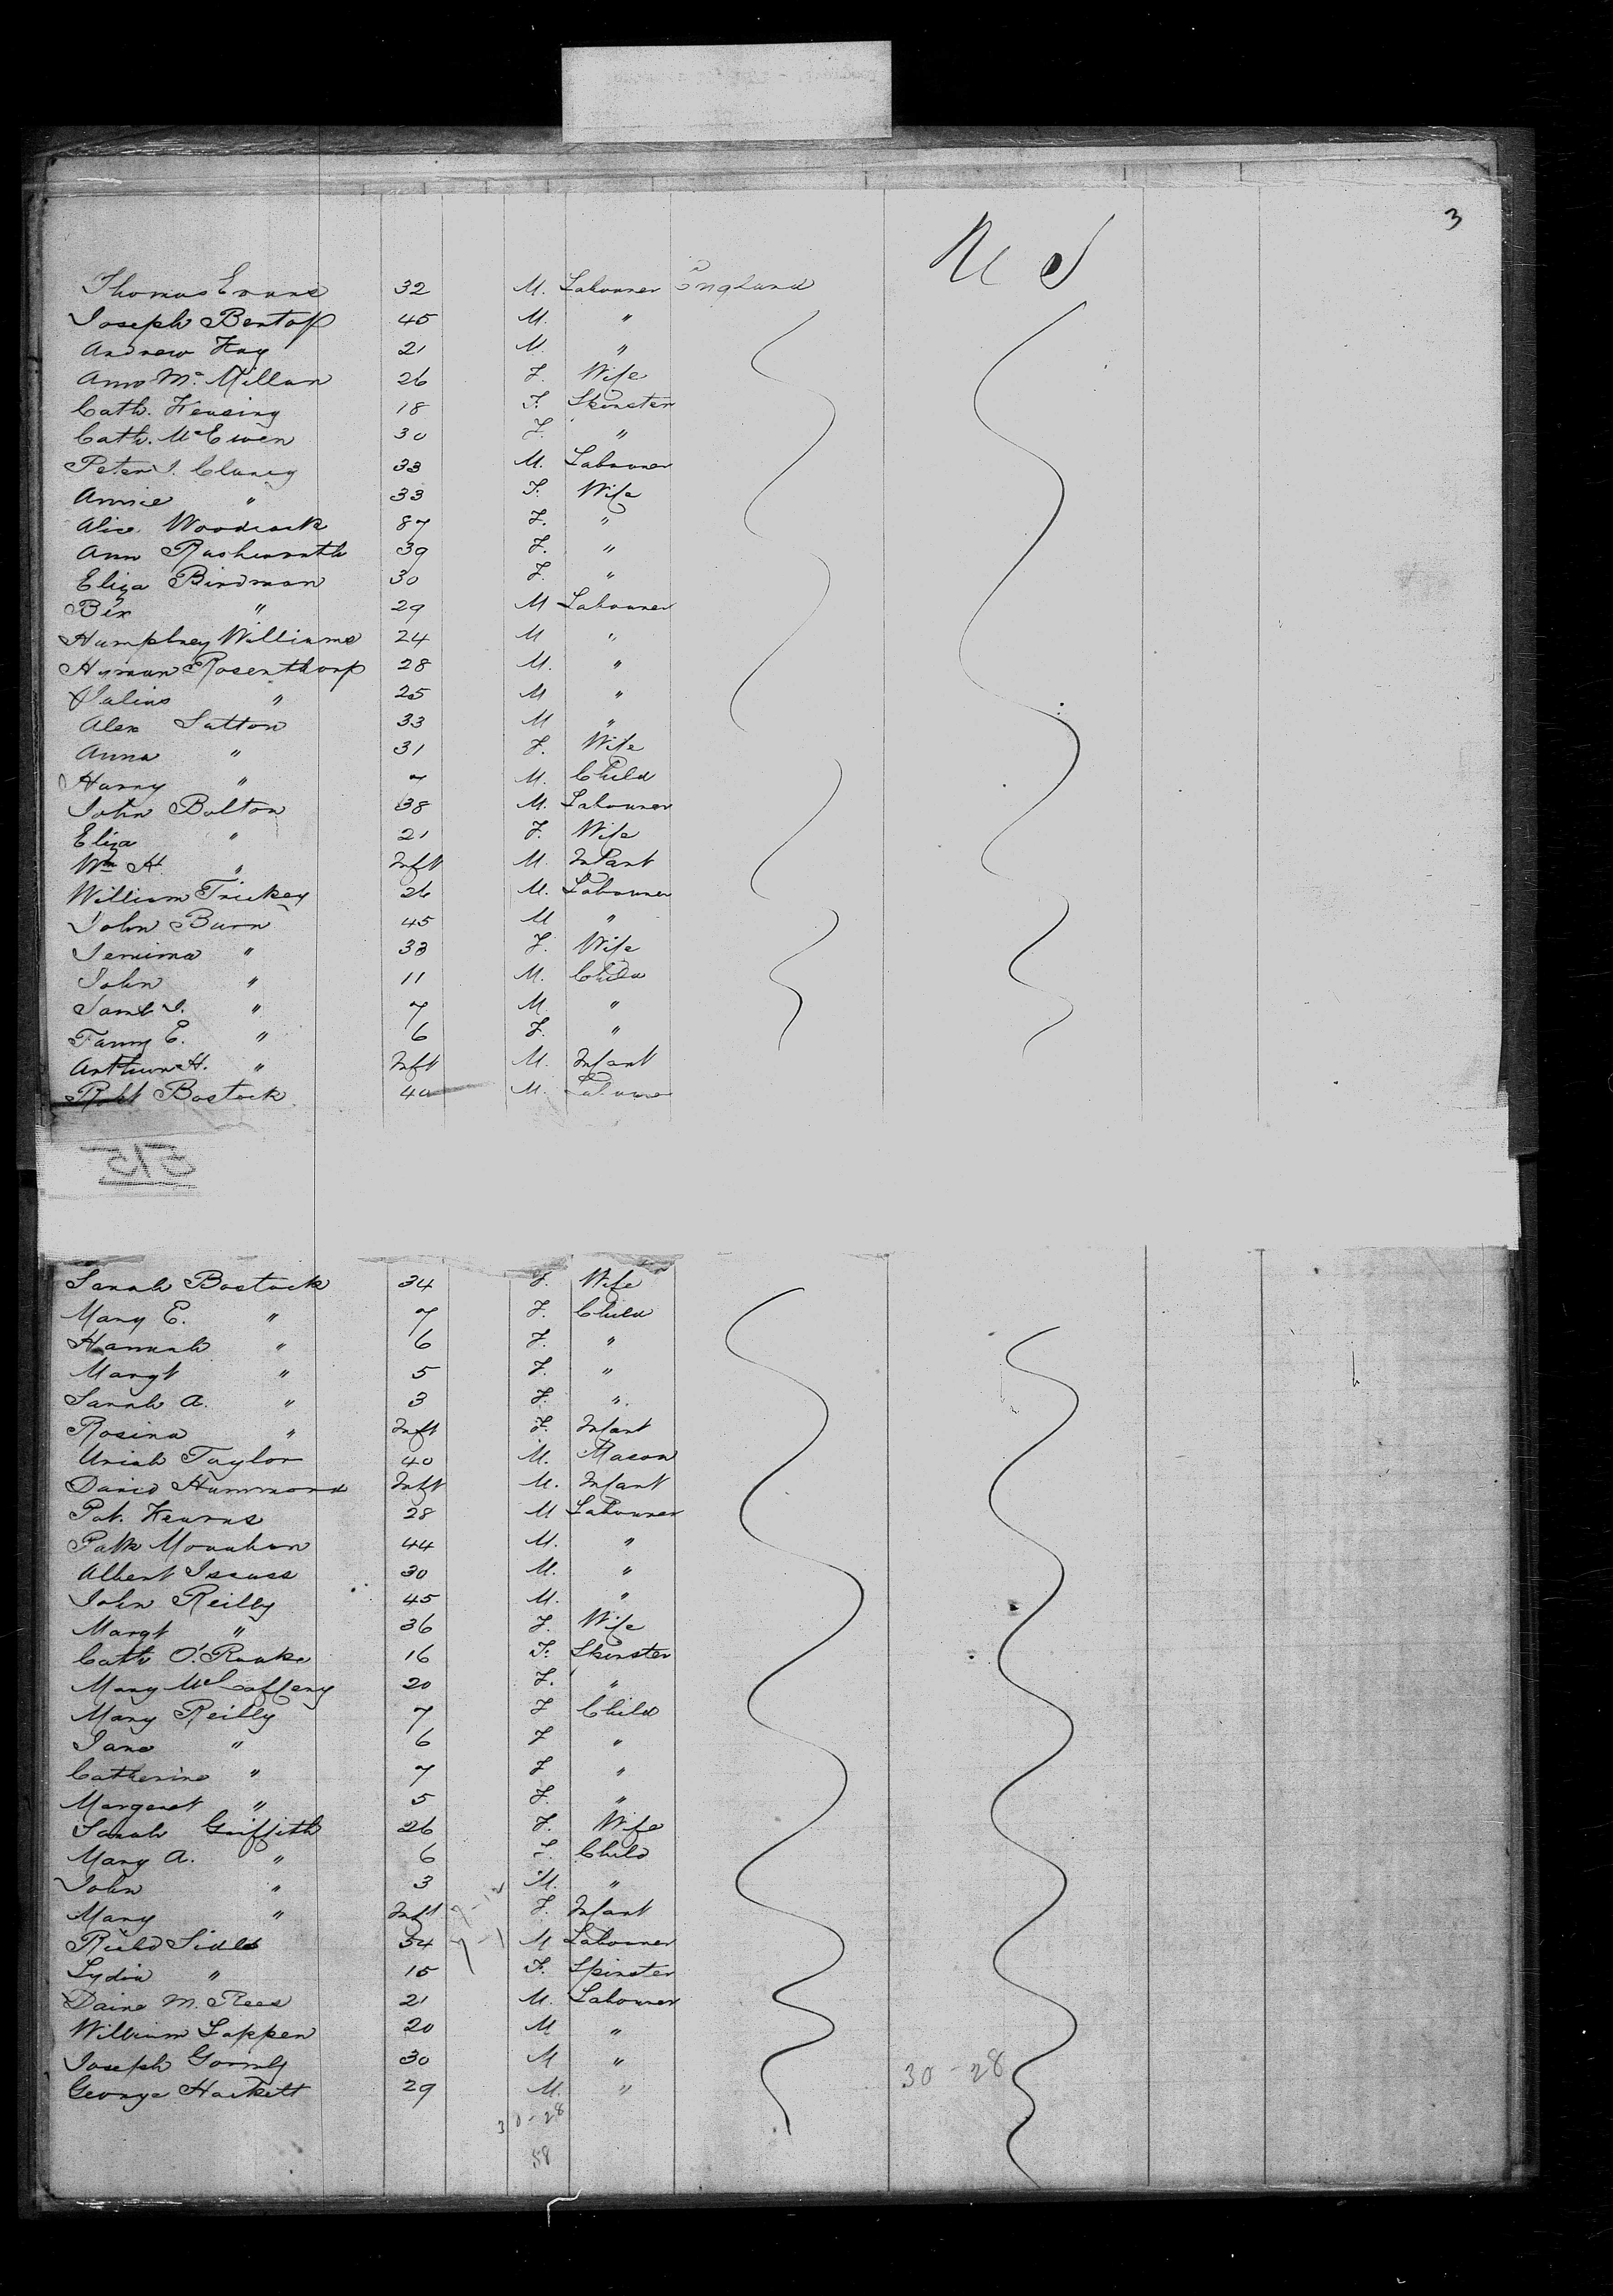 3
U S
Thomas Evans 32 M. Labourer England
Joseph Bentop 45 M. "
Andrew Hay 21 M. "
Ann Mc. Millan 26 F. Wife
Cath. Keusing 18 F. Spinster
Cath. McEwen 30 F. "
Peter J. Clancy 33 M. Labourer
Annie " 33 F. Wife
Alice Woodcock 87 F. "
Ann Rushworth 39 F. "
Eliza Birdman 30 F. "
" 29 M Labourer
Humphrey Williams 24 M "
Hyman Rosenthorp 28 M. "
Julius " 25 M "
Alex Sutton 33 M "
Anna " 31 F. Wife
Harry " 7 M. Child
John Bolton 38 M. Labourer
Eliza " 21 F. Wife
Wm H. " Inft M. Infant
William Trickey 26 M. Labourer
John Burn 45 M "
Jemima " 33 F. Wife
John " 11 M. Child
Saml J. " 7 M. "
Fanny E. " 6 F. "
Arthur H. " Inft M. Infant
Robt Bostock 40 M. Labourer
515
Sarah Bostock 34 F. Wife
Mary E. " 7 F. Child
Hannah " 6 F. "
Margt " 5 F. "
Sarah A. " 3 F. "
Rosina " Inft F. Infant
Uriah Taylor 40 M. Mason
David Hammond Inft M. Infant
Pat. Kearns 28 M Labourer
Patk Monahan 44 M. "
Albert Isaacs 30 M. "
John Reilly 45 M. "
Margt " 36 F. Wife
Cath O'.Rourke 16 F. Spinster
Mary McCaffery 20 F. "
Mary Reilly 7 F Child
Jane " 6 F "
Catherine " 7 F "
Margaret " 5 F. "
Sarah Griffith 26 F. Wife
Mary A. " 6 F. Child
John " 3 M. "
Mary " Inft F. Infant
Richd Sidles 54 M Labourer
Lydia " 15 F. Spinster
M. Rees 21 M. Labourer
William Lappen 20 M "
Joseph Gormly 30 M "
George Hackett 29 M. "
30-28
30-28
58